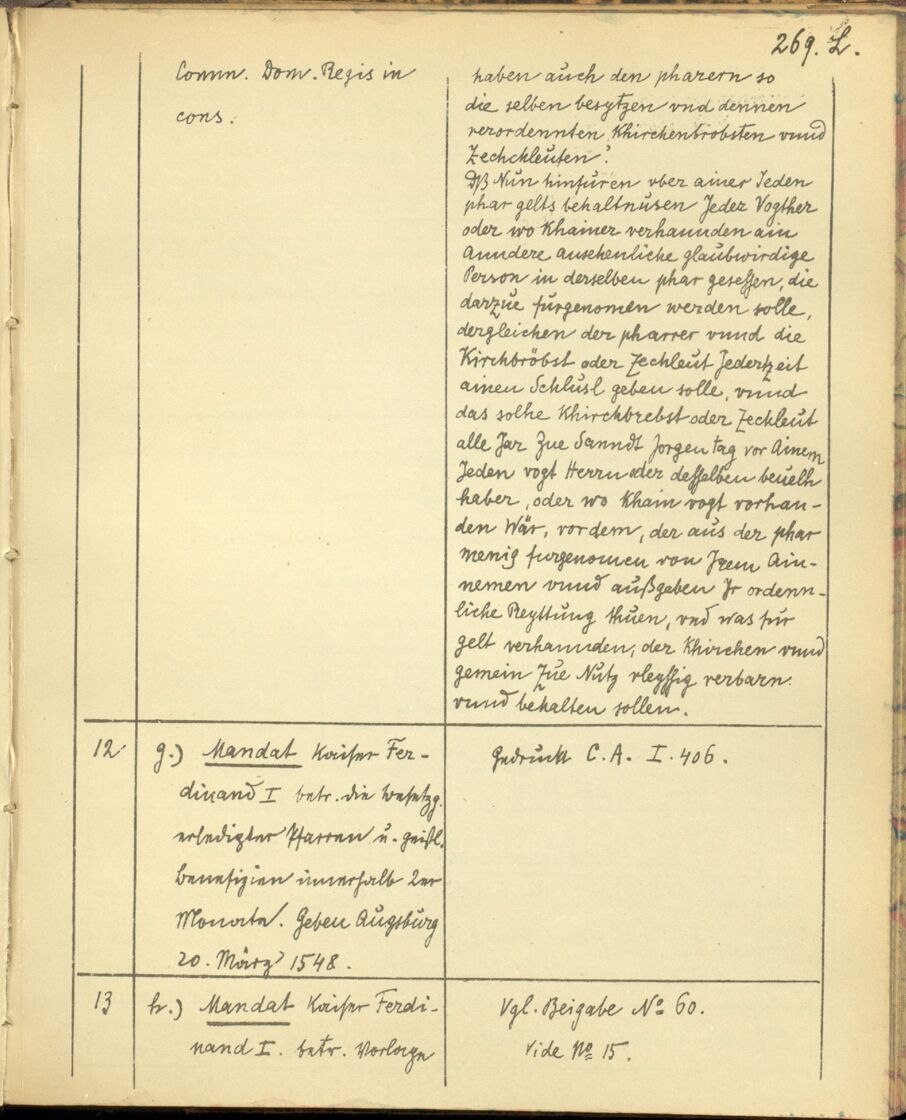 269. L.
Comm. Dom. Regis in
cons.
haben auch den pharern so
die selben besytzen vnd dennen
verordennten Khirchenbrobsten vnnd
Zechckleuten.
Nun hinfuren vber ainer Jeden
phar gelts behaltnusen Jeder Vogther
oder wo Khainer verhannden ain
Anndere ansehenliche glaubwirdige
Person in derselben phar gesessen, die
darzue furgenomen werden solle,
dergleichen der pharrer vnnd die
Kirchbröbst oder Zechleut Jederzeit
ainen Schlusl geben solle, vnnd
das solhe Khirchbrebst oder Zechleut
alle Jar Zue Sanndt Jorgen tag vor Ainem
Jeden vogt Herrn oder desselben beuelh
haber, oder wo Khain vogt vorhan-
den Wär, vor dem, der aus der phar
menig furgenomen von Jrem Ain-
nemen vnnd außgeben Jr ordenn-
liche Reyttung thuen, vnd was für
gelt verhannden, der Khirchen vnnd
gemein Zue Nutz vleyssig verbarn
vnnd behalten sollen.
12 g.) Mandat Kaiser Fer-
dinand I betr. die besetzg.
erledigter Pfarren u. geistl.
Benefizien innerhalb 2er
Monate. Geben Augsburg
20. März 1548.
Gedruckt C. A. I. 406.
13 h.) Mandat Kaiser Ferdi-
nand I. betr. Vorlage
Vgl. Beigabe No 60.
Vide No 15.